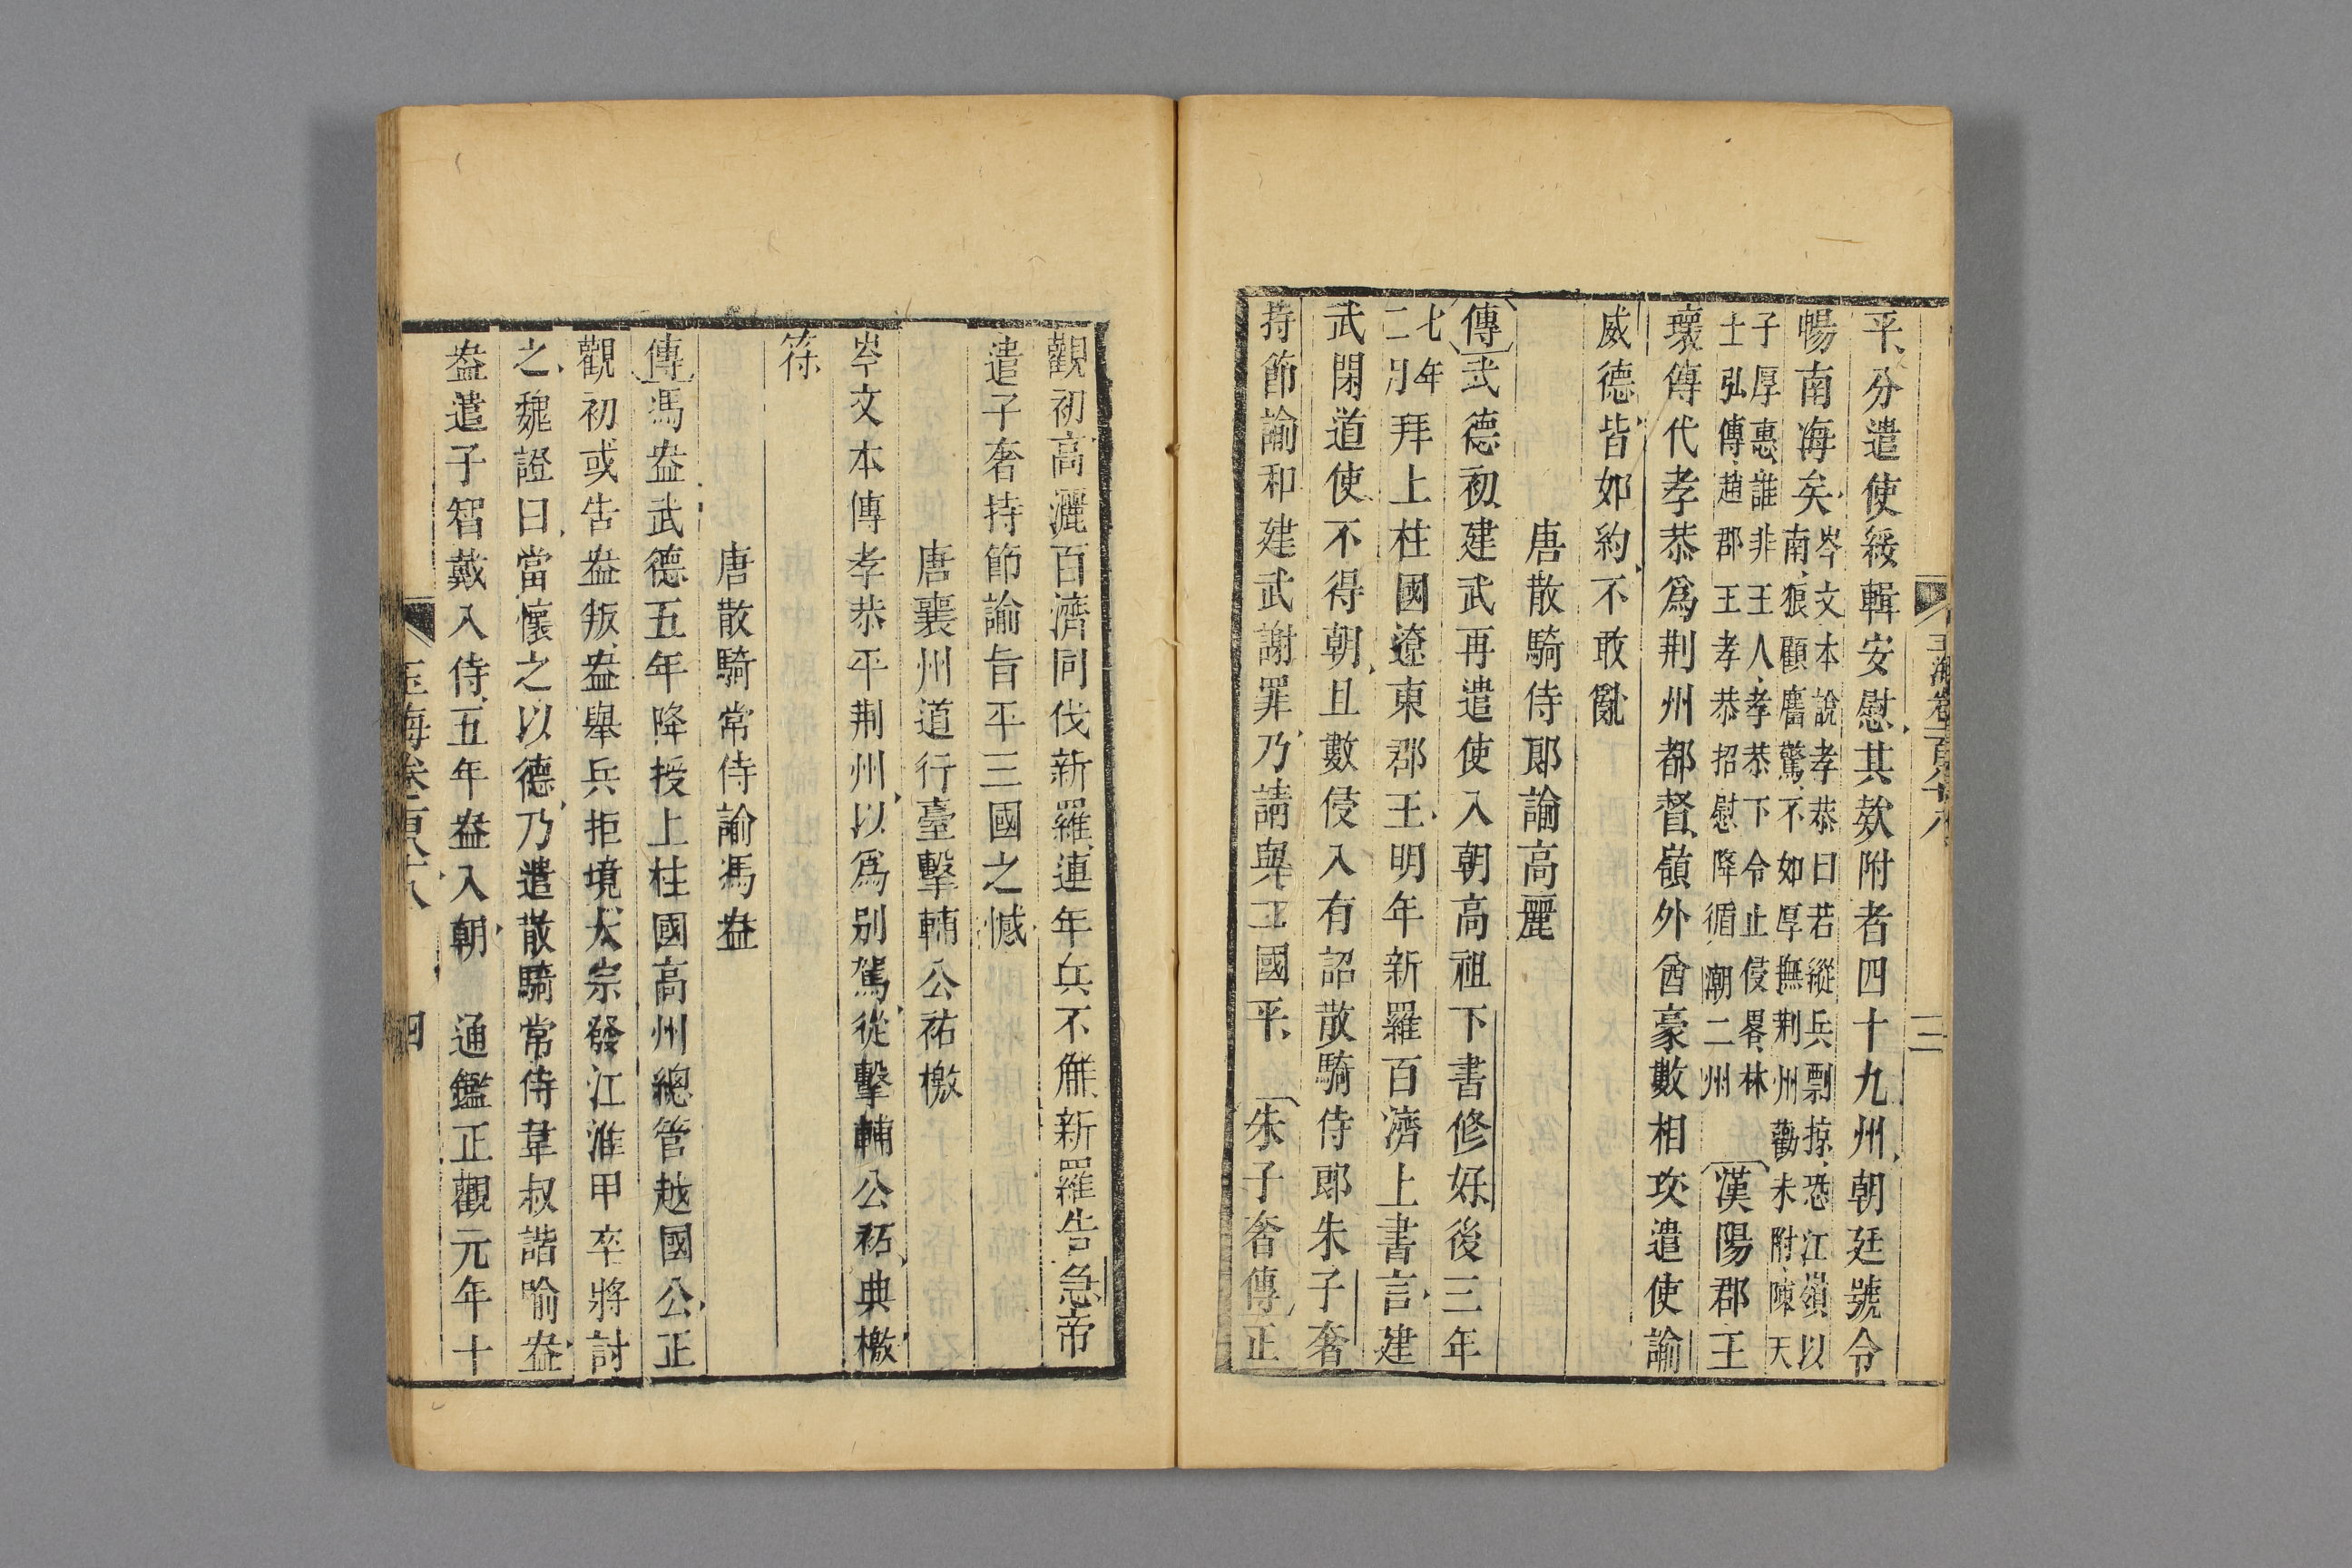 平分遣使綏輯安慰其欵附者四十九州朝廷號令
暢南海矣岑文本說孝恭曰若縱兵剽掠恐江嶺以南狼顧麕驚不如厚撫荆州勸未附陳天
子厚惠誰非王人孝恭下令止侵畧林士弘傳趙郡王孝恭招慰降循潮二州漢陽郡王
瓌傳代孝恭爲荆州都督嶺外酋豪數相攻遣使諭
威德皆如約不敢亂
唐散騎侍郎諭高麗
傳武德初建武再遣使入朝高祖下書修好後三年
七年二月拜上柱國遼東郡王明年新羅百濟上書言建
武閉道使不得朝且數侵入有詔散騎侍郎朱子奢
持節諭和建武謝罪乃請與二國平朱子奢傳正
觀初高灑百濟同伐新羅連年兵不解新羅告急帝
遣子奢持節諭旨平三國之憾
唐襄州道行臺擊輔公祏檄
岑文本傳孝恭平荆州以爲别駕從擊輔公祏典檄
符
唐散騎常侍諭馮盎
傳馮盎武德五年降授上柱國高州總管越國公正
觀初或告盎叛盎舉兵拒境太宗發江淮甲卒將討
之魏證曰當懷之以德乃遣散騎常侍韋叔諧喻盎
盎遣子智戴入侍五年盎入朝　通鑑正觀元年十
玉海卷一百八十八　四